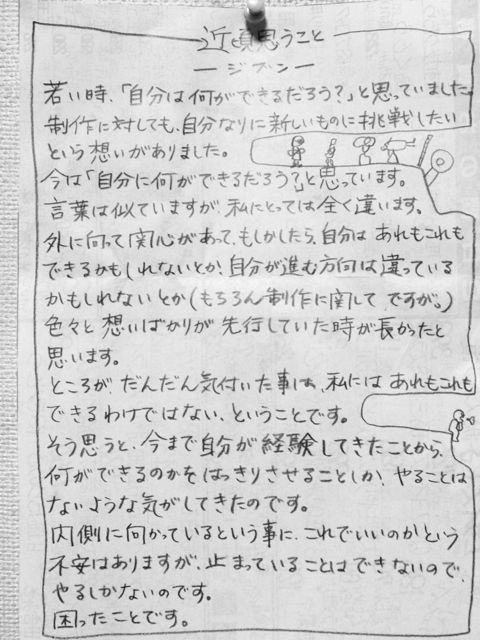 近頃思うこと
ージブンー
若い時、「自分は何ができるだろう?」と思っていました。
制作に対しても、自分なりに新しいものに挑戦したい
という想いがありました。
今は「自分に何ができるだろう?」と思っています。
言葉は似ていますが、私にとっては全く違います。
外に向って関心があって、もしかしたら、自分は あれもこれも
できるかもしれないとか、自分が進む方向は違っている
かもしれないとか(もちろん制作に関して、ですが。)
色々と 想いばかりが 先行していた時が長かったと
思います。
ところが、だんだん気付いた事は、私には あれもこれも
できるわけではない、ということです。
そう思うと、今まで自分が経験してきたことから、
何ができるのかを はっきりさせることしか、やることは
ないような気がしてきたのです。
内側に向かっているという事に、これでいいのか という
不安はありますが、止まっていることはできないので、
やるしかないのです。
困ったことです。